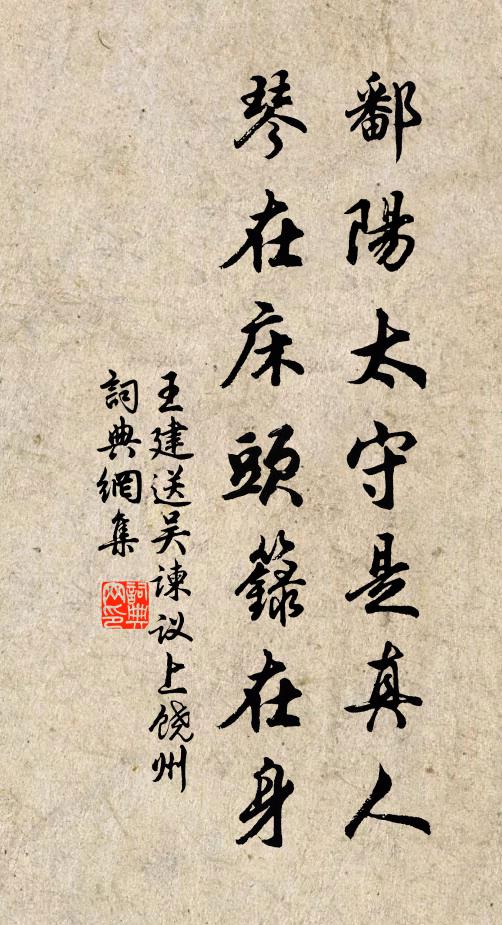 鄱陽太守是真人
琴在床頭籙在身
王建送吴谏议上饶州
詞典網集
詞典网印